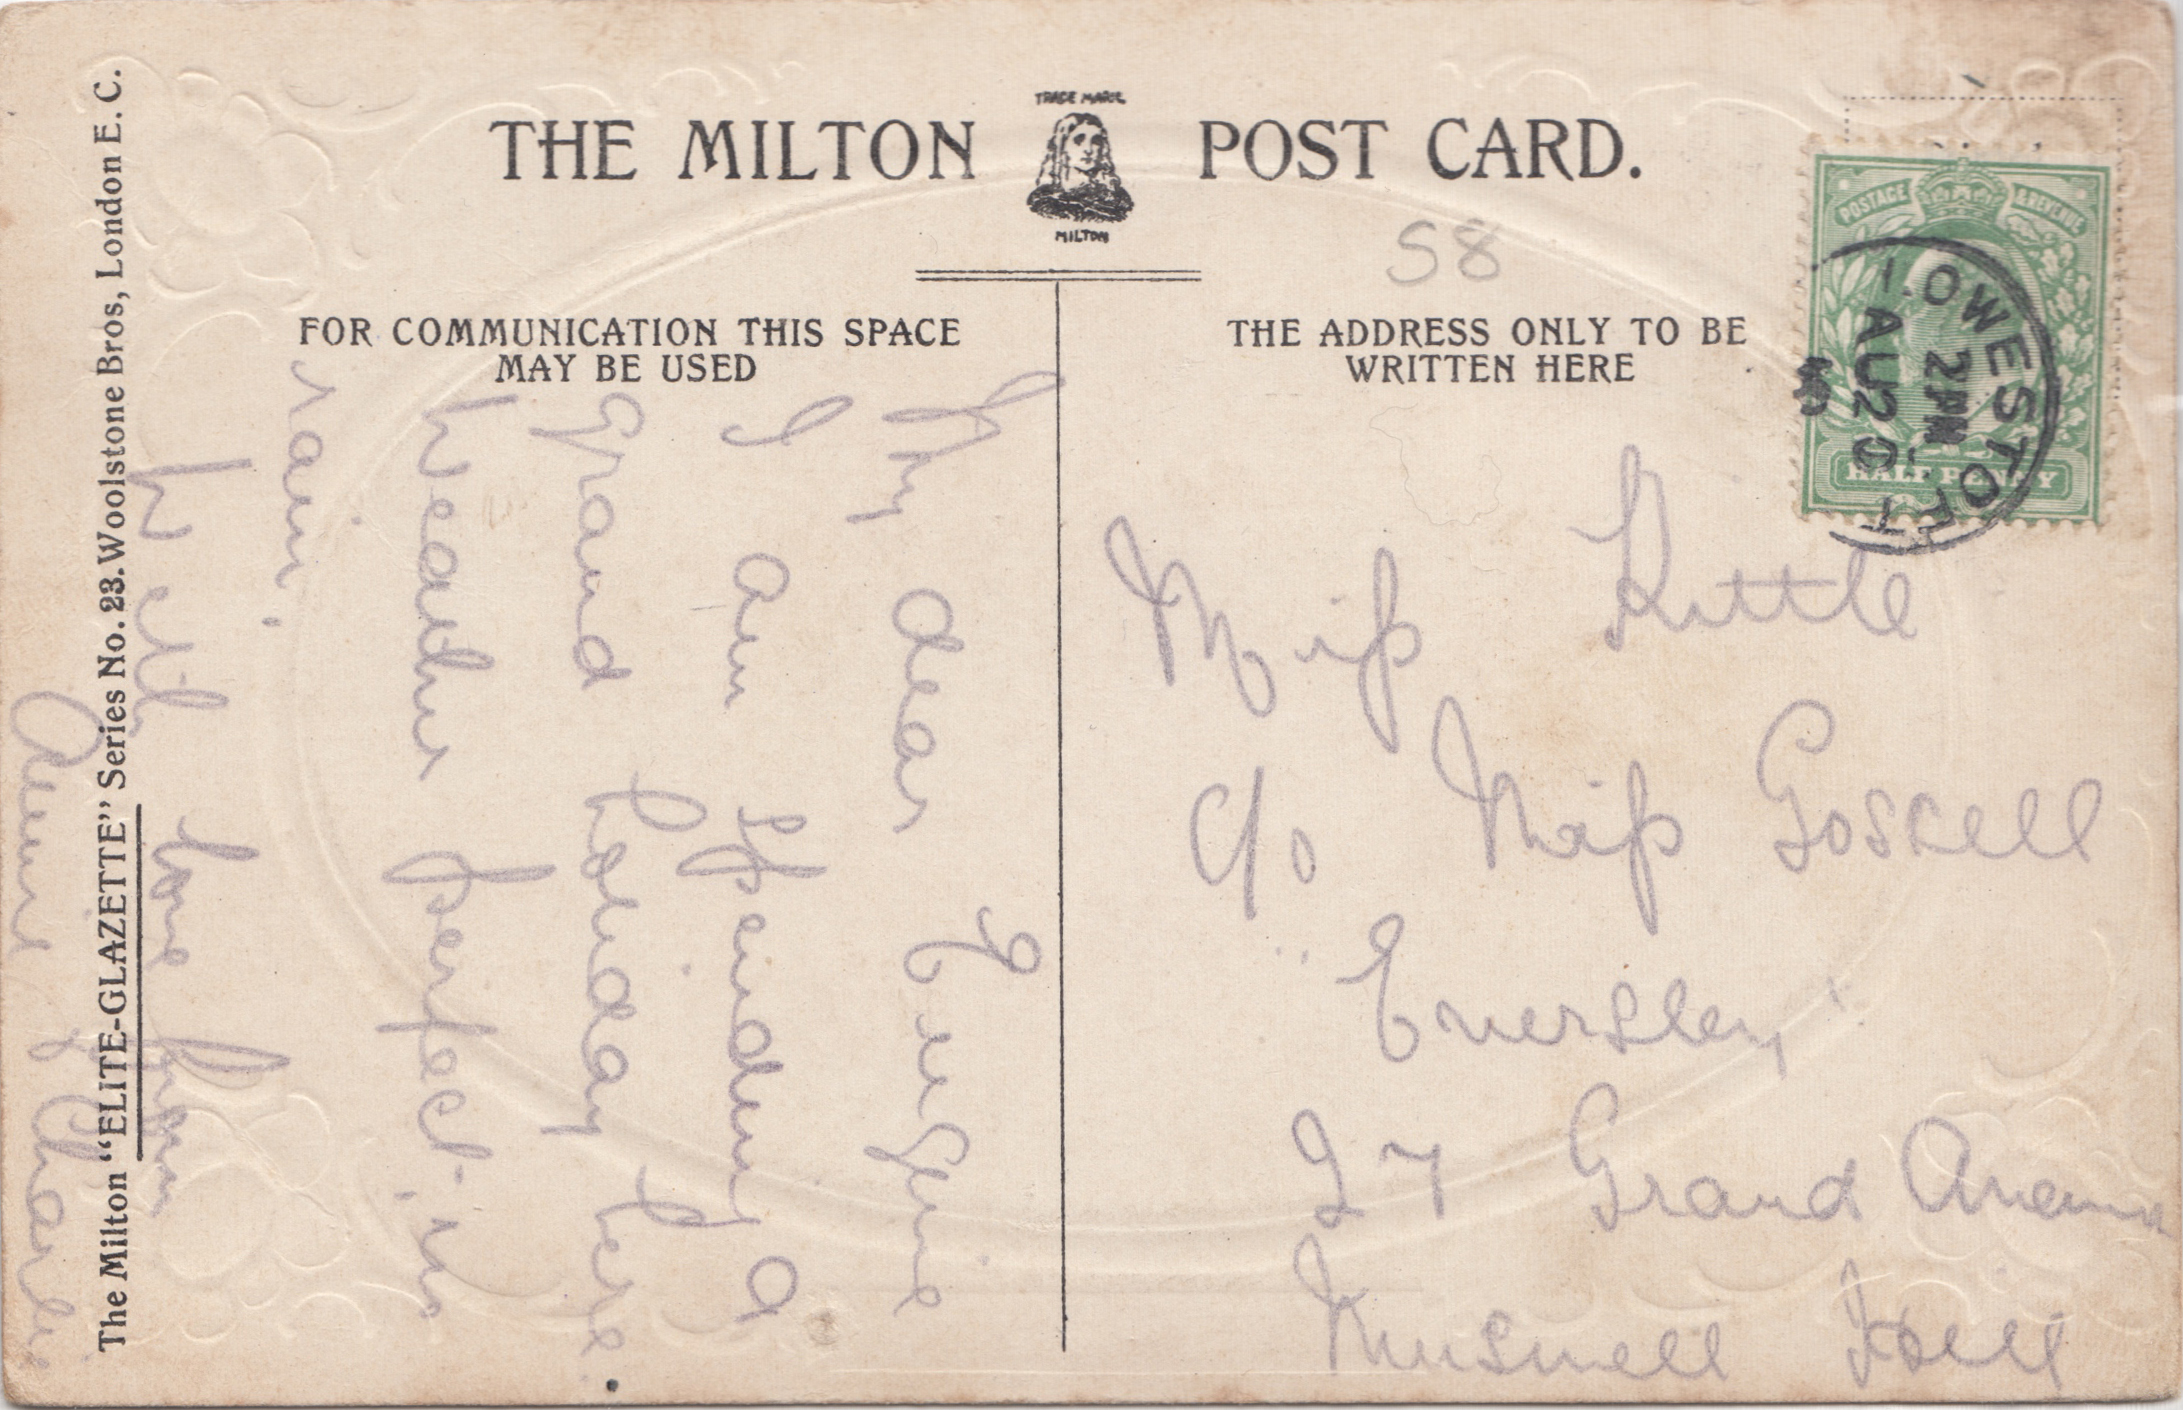 THE MILTON POST CARD.
TRADE MARK
MILTON
FOR COMMUNICATION THIS SPACE
MAY BE USED
THE ADDRESS ONLY TO BE
WRITTEN HERE
58
POSTAGE & REVENUE
HALF PENNY
LOWESTOFT
2 PM
AU 2
My dear Eugenie
I am Spending a
Grand holiday here
Weather perfect, no
rain.
With love from
Annie & Charlie
Miss Kittle
C/o Miss Goskell
Eversley
27 Grand Avenue
Muswell Hill
The Milton "ELITE-GLAZETTE" Series No. 23. Woolstone Bros, London E. C.